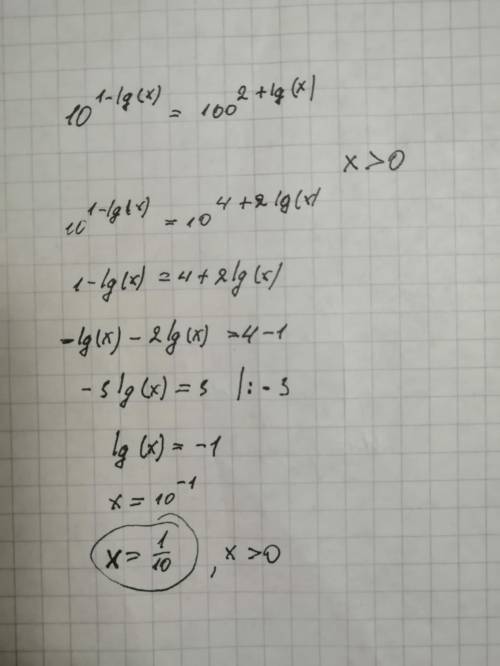 10^(1-lg(x)) = 100^(2+lg(x)
x>0
10^(1-lg(x)) = 10^(4+2lg(x)
1-lg(x) = 4+2lg(x)
-lg(x) - 2lg(x) = 4-1
-3lg(x) = 3 |:-3
lg(x) = -1
x = 10^(-1)
x = 1/10 , x>0